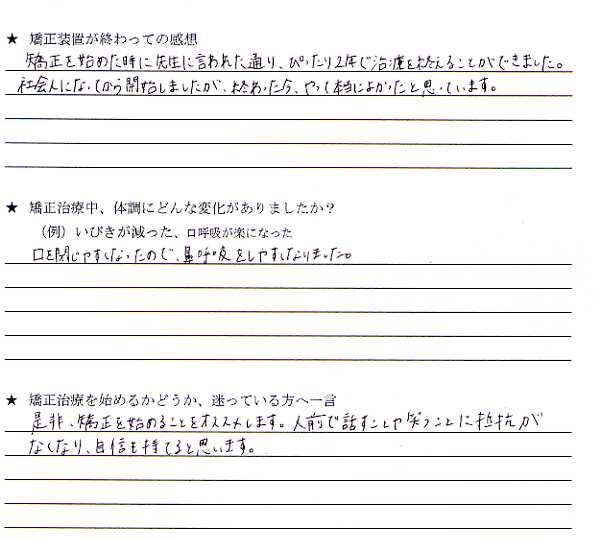 ★ 矯正装置が終わっての感想
矯正を始めた時に先生に言われた通り、ぴったり2年で治療を終えることができました。
社会人になってから開始しましたが、終わった今、やって本当によかったと思っています。
★ 矯正治療中、体調にどんな変化がありましたか？
（例）いびきが減った、口呼吸が楽になった
口を閉じやすくなったので、鼻呼吸をしやすくなりました。
★ 矯正治療を始めるかどうか、迷っている方へ一言
是非、矯正を始めることをオススメします。人前で話すことや笑うことに抵抗が
なくなり、自信も持てると思います。